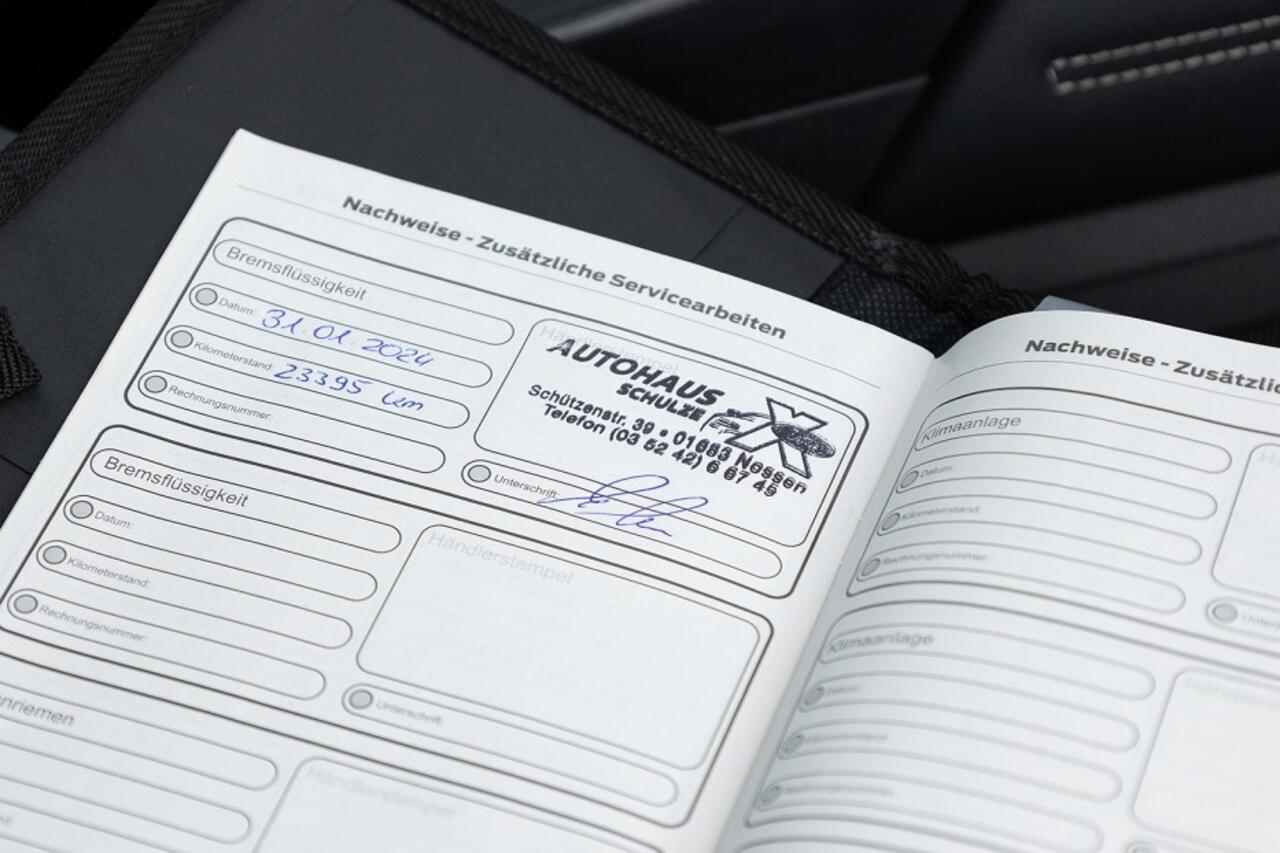 Nachweise - Zusätzliche Servicearbeiten
Bremsflüssigkeit
Datum: 31.01.2024
Kilometerstand: 23395 km
Rechnungsnummer:
Händlerstempel
AUTOHAUS
SCHULZE
Schützenstr. 39 • 01683 Nossen
Telefon (03 52 42) 6 67 49
Unterschrift:
Bremsflüssigkeit
Datum:
Kilometerstand:
Rechnungsnummer:
Händlerstempel
Unterschrift:
nriemen
Händlerstempel
Nachweise - Zusätzlic
Klimaanlage
Datum:
Kilometerstand:
Rechnungsnummer:
Unter
Klimaanlage
Datum:
Kilometerstand:
Rechnungsnummer:
Händlerste